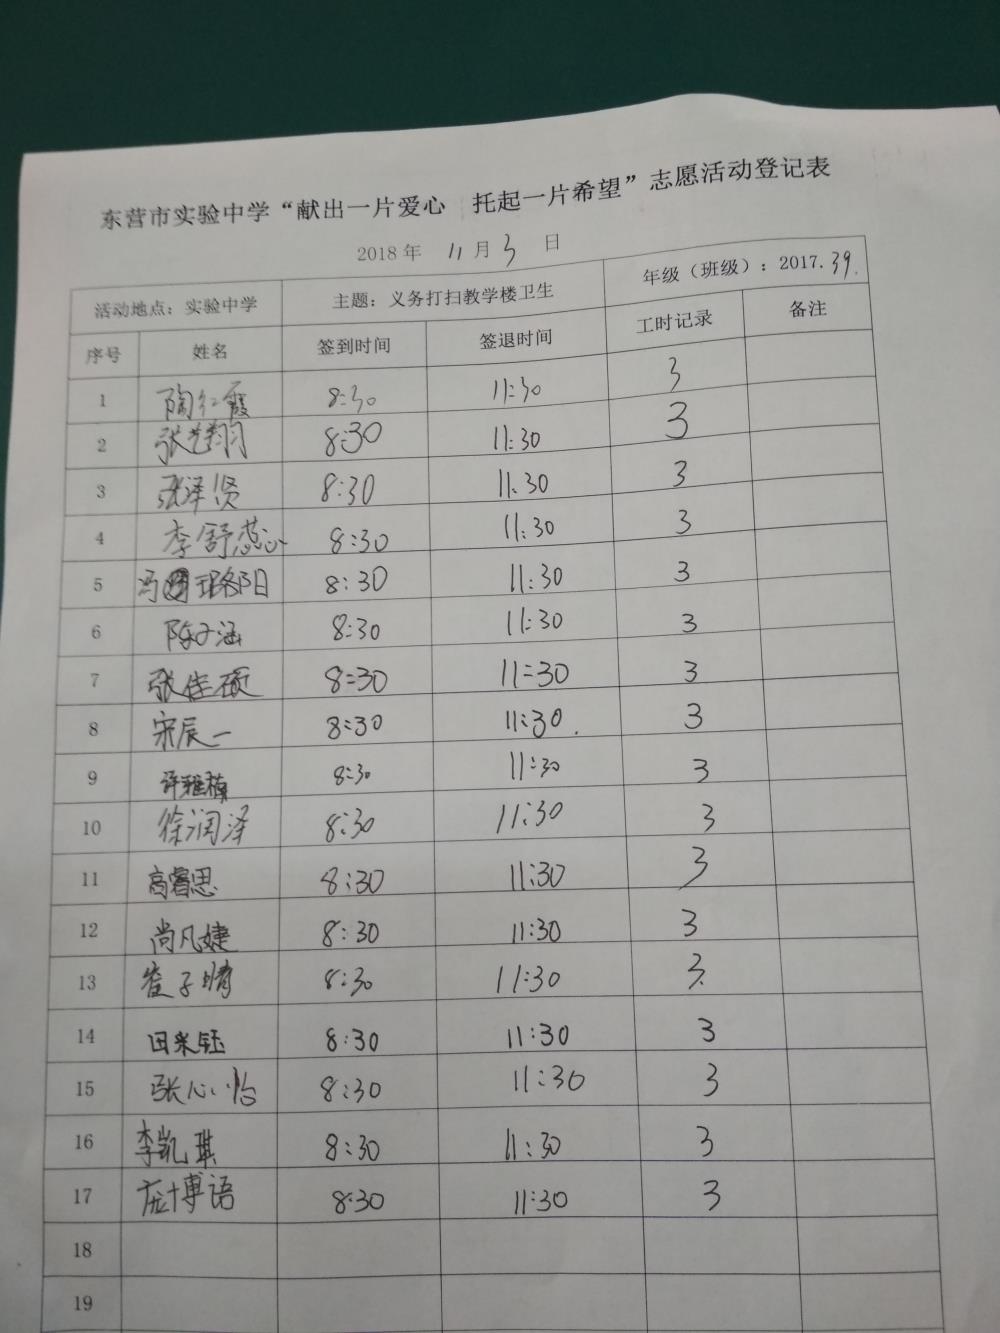 东营市实验中学“献出一片爱心 托起一片希望”志愿活动登记表
2018年 11月 3 日
活动地点：实验中学 主题：义务打扫教学楼卫生 年级（班级）：2017.39.
序号 姓名 签到时间 签退时间 工时记录 备注
1 陶红霞 8:30 11:30 3
2 张艺翔 8:30 11:30 3
3 张泽贤 8:30 11:30 3
4 李舒蕊 8:30 11:30 3
5 冯璐阳 8:30 11:30 3
6 陈子涵 8:30 11:30 3
7 张佳硕 8:30 11:30 3
8 宋辰一 8:30 11:30. 3
9 许雅楠 8:30 11:30 3
10 徐润泽 8:30 11:30 3
11 高睿思 8:30 11:30 3
12 尚凡婕 8:30 11:30 3
13 崔子晴 8:30 11:30 3.
14 田采钰 8:30 11:30 3
15 张心怡 8:30 11:30 3
16 李凯琪 8:30 11:30 3
17 庞博语 8:30 11:30 3
18
19